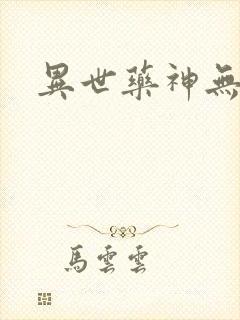 異世藥神無
馬雲雲